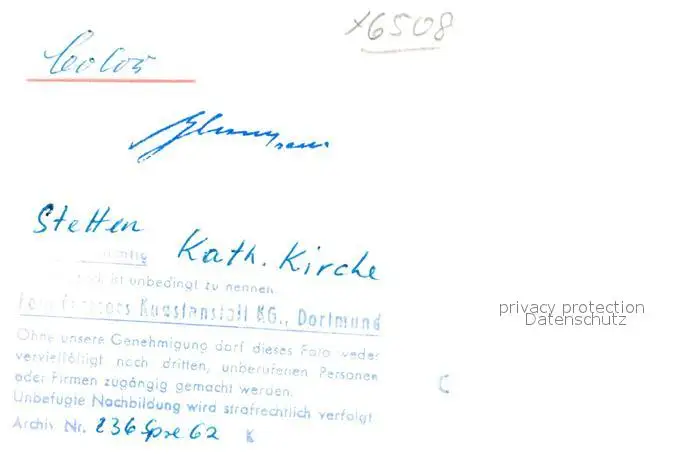 x6508
Color
Stetten Kath. Kirche
ist unbedingt zu nennen.
Kunstanstalt KG., Dortmund
Ohne unsere Genehmigung darf dieses Foto weder
vervielfältigt noch dritten, unberufenen Personen
oder Firmen zugängig gemacht werden.
Unbefugte Nachbildung wird strafrechtlich verfolgt
Archiv Nr. 236 Spre 62 K
C
privacy protection
Datenschutz